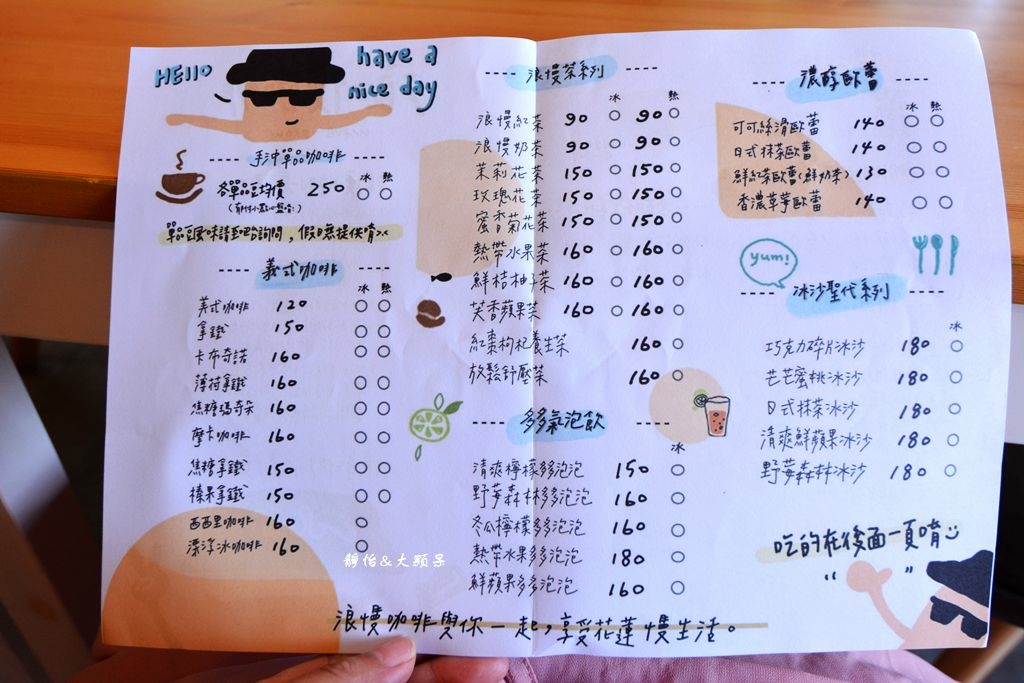 HEllo
have a
nice day
---- 手沖單品咖啡 ----
冰 熱
各單品豆均價 250 ○ ○
單品豆風味請至吧台詢問，假日無提供唷><
---- 義式咖啡 ----
冰 熱
美式咖啡 120 ○ ○
拿鐵 150 ○ ○
卡布奇諾 160 ○ ○
薄荷拿鐵 160 ○ ○
焦糖瑪奇朵 160 ○ ○
摩卡咖啡 160 ○ ○
焦糖拿鐵 150 ○ ○
榛果拿鐵 150 ○ ○
西西里咖啡 160 ○
漂浮冰咖啡 160 ○
---- 浪慢茶系列 ----
冰 熱
浪慢紅茶 90 ○ 90 ○
浪慢奶茶 90 ○ 90 ○
茉莉花茶 150 ○ 150 ○
玫瑰花茶 150 ○ 150 ○
蜜香菊花茶 150 ○ 150 ○
熱帶水果茶 160 ○ 160 ○
鮮桔柚子茶 160 ○ 160 ○
芙香蘋果茶 160 ○ 160 ○
紅棗枸杞養生茶 160 ○
放鬆舒壓茶 160 ○
---- 多多氣泡飲 ----
冰
清爽檸檬多泡泡 150 ○
野莓森林多多泡泡 160 ○
冬瓜檸檬多多泡泡 160 ○
熱帶水果多泡泡 180 ○
鮮蘋果多多泡泡 160 ○
---- 濃醇歐蕾 ----
冰 熱
可可絲滑歐蕾 140 ○ ○
日式抹茶歐蕾 140 ○ ○
鮮紅茶歐蕾(鮮奶茶) 130 ○ ○
香濃草莓歐蕾 140 ○ ○
yum!
---- 冰沙聖代系列 ----
冰
巧克力碎片冰沙 180 ○
芒芒蜜桃冰沙 180 ○
日式抹茶冰沙 180 ○
清爽鮮蘋果冰沙 180 ○
野莓森林冰沙 180 ○
吃的在後面一頁唷
靜怡&大顆呆
浪慢咖啡與你一起，享受花蓮慢生活。